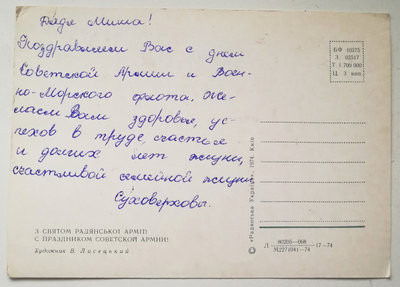 Дядя Миша!
Поздравляем Вас с днем
Советской Армии и Воен-
но-Морского флота. Же-
лаем Вам здоровья, ус-
пехов в труде, счастья
и долгих лет жизни,
счастливой семейной жизни
Суховерховы.
З СВЯТОМ РАДЯНСЬКОЇ АРМІЇ!
С ПРАЗДНИКОМ СОВЕТСКОЙ АРМИИ!
Художник В. Лисецький
БФ 10375
З. 02517
Т 1 700 000
Ц. 3 коп
«Радянська Україна», 1974, Київ
Л 80205—068 17—74
М227(04)—74